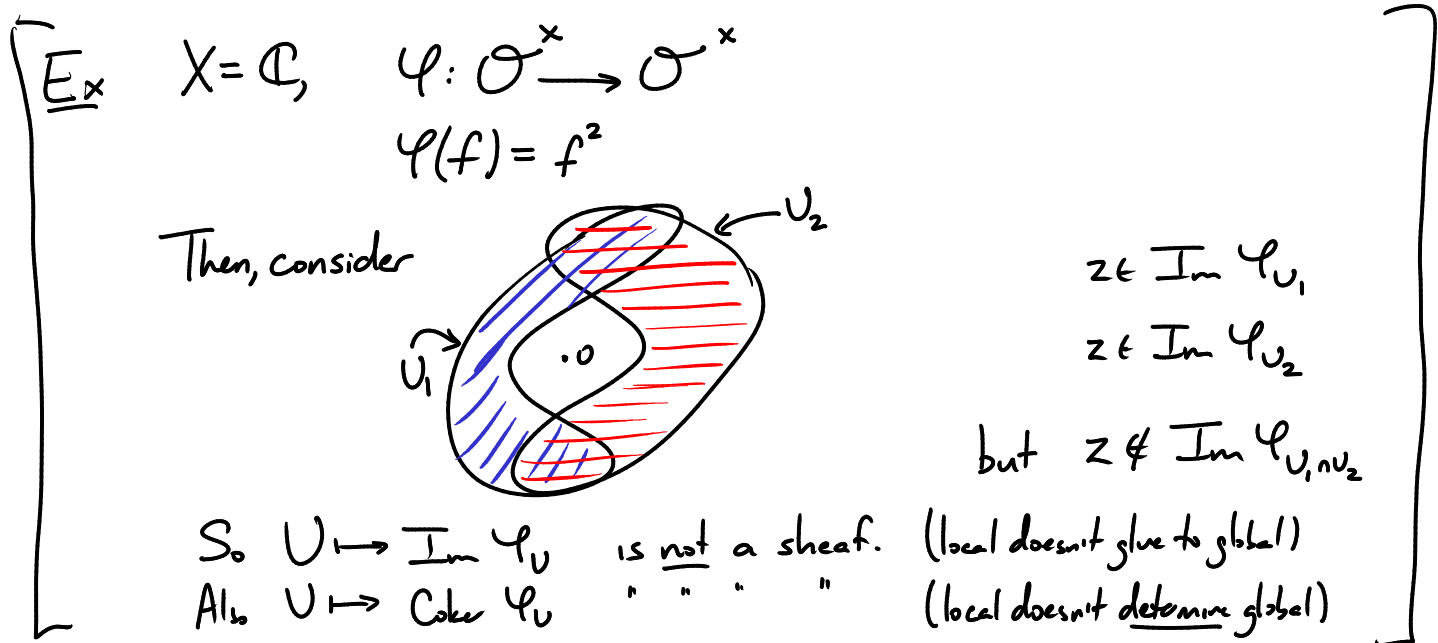 Ex X = ℂ, φ: 𝒪^× ⟶ 𝒪^×
φ(f) = f²
Then, consider
U₂
U₁
·0
z ∈ Im φ_{U₁}
z ∈ Im φ_{U₂}
but z ∉ Im φ_{U₁∩U₂}
So U ↦ Im φ_U is not a sheaf. (local doesn't glue to global)
Also U ↦ Coker φ_U " " " " (local doesn't determine global)